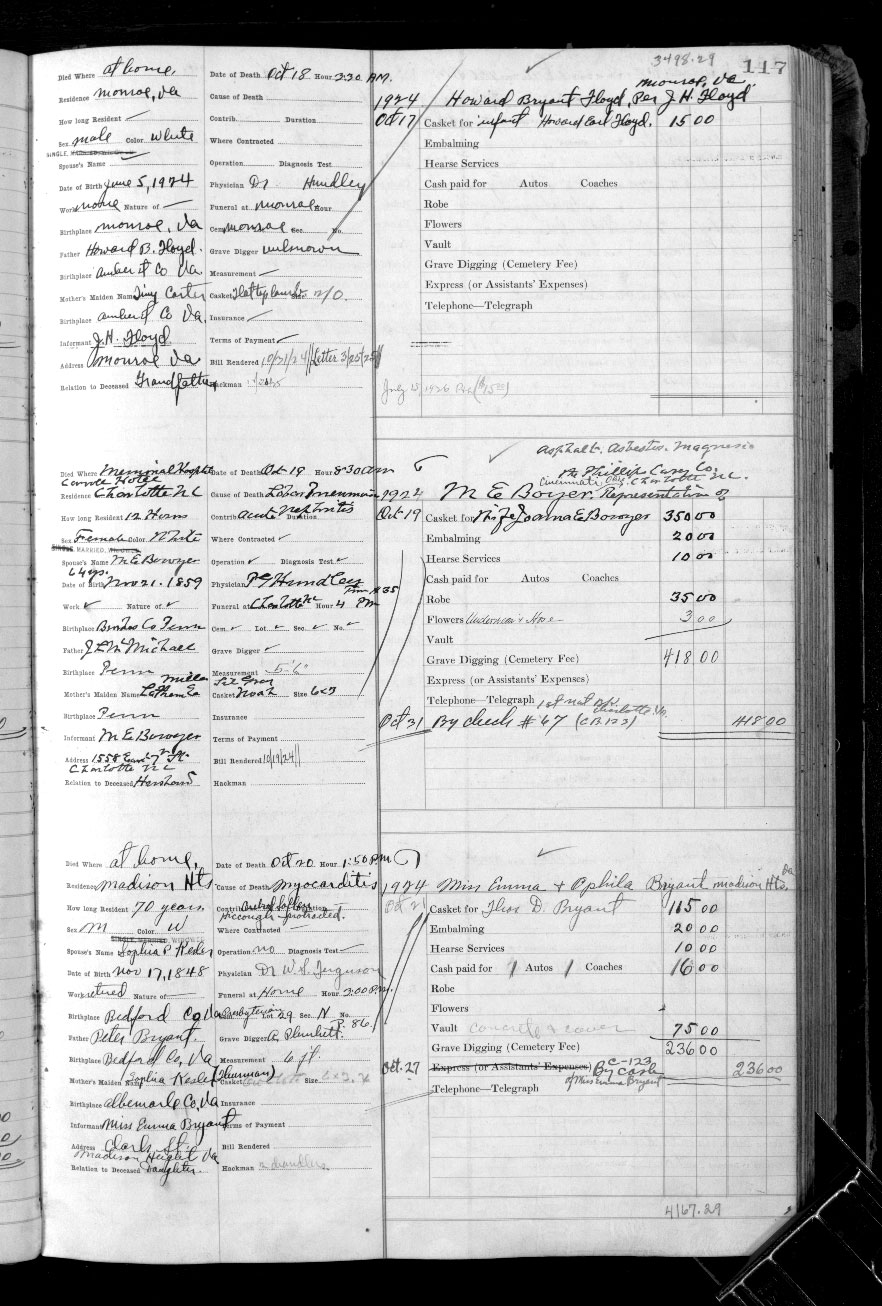 3498.29
117
Died Where at home,
Date of Death Oct 18 Hour 3:30 AM.
Residence Monroe, Va
Cause of Death
Monroe, Va
1924 Howard Bryant Floyd, Per J. H. Floyd
How long Resident —
Contrib. Duration
Oct 17 Casket for infant Howard Earl Floyd. 15 00
Sex male Color White
Where Contracted
Embalming
SINGLE, MARRIED, WIDOWED
Spouse's Name
Operation Diagnosis Test
Hearse Services
Date of Birth June 5, 1924
Physician Dr Hundley
Cash paid for Autos Coaches
Work none Nature of —
Funeral at Monroe Hour
Robe
Birthplace Monroe, Va
Cem. Monroe Sec. No.
Flowers
Father Howard B. Floyd.
Grave Digger unknown
Vault
Birthplace Amherst Co Va
Measurement —
Grave Digging (Cemetery Fee)
Mother's Maiden Name Tiny Carter
Casket Size 2/0
Express (or Assistants' Expenses)
Birthplace Amherst Co Va.
Insurance
Telephone—Telegraph
Informant J.H. Floyd
Terms of Payment
Address Monroe Va
Bill Rendered 10/31/24 // Letter 3/25/25 //
Relation to Deceased Grandfather
Hackman
July 1926
Asphalt. Asbestos. Magnesia
The Phillip Carey Co.
Cincinnati Charlotte N.C.
Died Where Memorial Hospital
Date of Death Oct 19 Hour 8:30 am
Residence Charlotte NC
Cause of Death Lobar Pneumonia
1924 M E Bowyer. Representative of
How long Resident 12 Hours
Contrib. acute Nephritis Duration
Oct 19 Casket for Wife Joanna E Bowyer 350 00
Sex Female Color White
Where Contracted
Embalming 20 00
SINGLE, MARRIED, WIDOWED
Spouse's Name M E Bowyer
Operation Diagnosis Test
Hearse Services 10 00
64 yrs.
Date of Birth Nov 21. 1859
Physician Hundley
Cash paid for Autos Coaches
Work Nature of
Funeral at Charlotte NC Hour 4 PM
Robe 35 00
Birthplace Co Tenn
Cem. Lot Sec. No.
Flowers Underwear & Hose 3 00
Father J L McMichael
Grave Digger
Vault
Birthplace Tenn
Measurement 5-6"
Grave Digging (Cemetery Fee) 418 00
Mother's Maiden Name
Casket Size 6x3
Express (or Assistants' Expenses)
Birthplace Tenn
Insurance
Telephone—Telegraph
1st Nat Bk Charlotte
Oct 31 By check # 67 (CB 123) 418 00
Informant M E Bowyer
Terms of Payment
Address 1558 East 7th St.
Charlotte NC
Bill Rendered 10/19/24 //
Relation to Deceased Husband
Hackman
Died Where at home,
Date of Death Oct 20 Hour 1:50 P.M.
Residence Madison Hts
Cause of Death Myocarditis
1924 Miss Emma & Ophila Bryant Madison Hts, Va
How long Resident 70 years.
Contrib. Duration
Hiccough - protracted.
Oct 21 Casket for Thos D. Bryant 115 00
Sex M Color W
Where Contracted
Embalming 20 00
SINGLE, MARRIED, WIDOWED
Spouse's Name Sophia P Kesler
Operation no Diagnosis Test —
Hearse Services 10 00
Date of Birth Nov 17, 1848
Physician Dr W. S. Ferguson
Cash paid for 1 Autos 1 Coaches 16 00
Work retired Nature of —
Funeral at Home Hour 3:00 P.M.
Robe
Birthplace Bedford Co, Va
Cem. Presbyterian Lot 29 Sec. N No. P. 86
Flowers
Father Peter Bryant.
Grave Digger A. Plunkett.
Vault Concrete & cover 75 00
Birthplace Bedford Co, Va
Measurement 6 ft
Grave Digging (Cemetery Fee) 236 00
Mother's Maiden Name Sophia Kesler (Thurman)
Casket Size 6x3
Oct. 27 Express (or Assistants' Expenses) By Cash C-123 236 00
of Miss Emma Bryant
Birthplace Albemarle Co, Va
Insurance
Telephone—Telegraph
Informant Miss Emma Bryant
Terms of Payment
Address Clark St.
Madison Heights Va
Bill Rendered
Relation to Deceased Daughter.
Hackman
4167.29